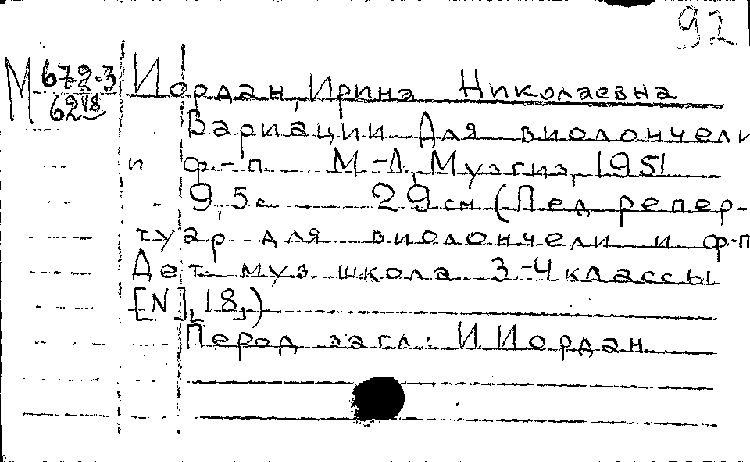 92
М 679-3 Иордан, Ирина Николаевна
62
Вариации Для виолончели
и ф-п М-Л, Музгиз, 1951
9, 5с 29 см (Пед репер-
туар для виолончели и ф-п
Дет муз школа 3-4 классы
[N], 18,)
Перед загл: И Иордан